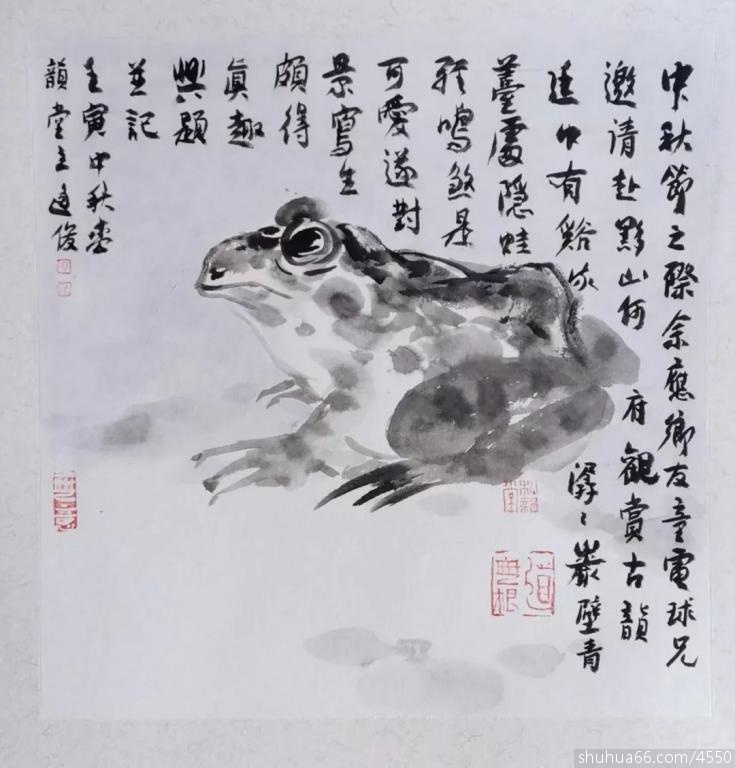 中秋節之際余應鄉友童電球兄
邀请赴黟山何府觀賞古韻
建中有谿水潺〻巖壁青
處隱蛙
鳴煞是
可愛遂對
景寫生
頗得
真趣
興題
並記
壬寅中秋
韻堂主俊
道無根
shuhua66.com/4550